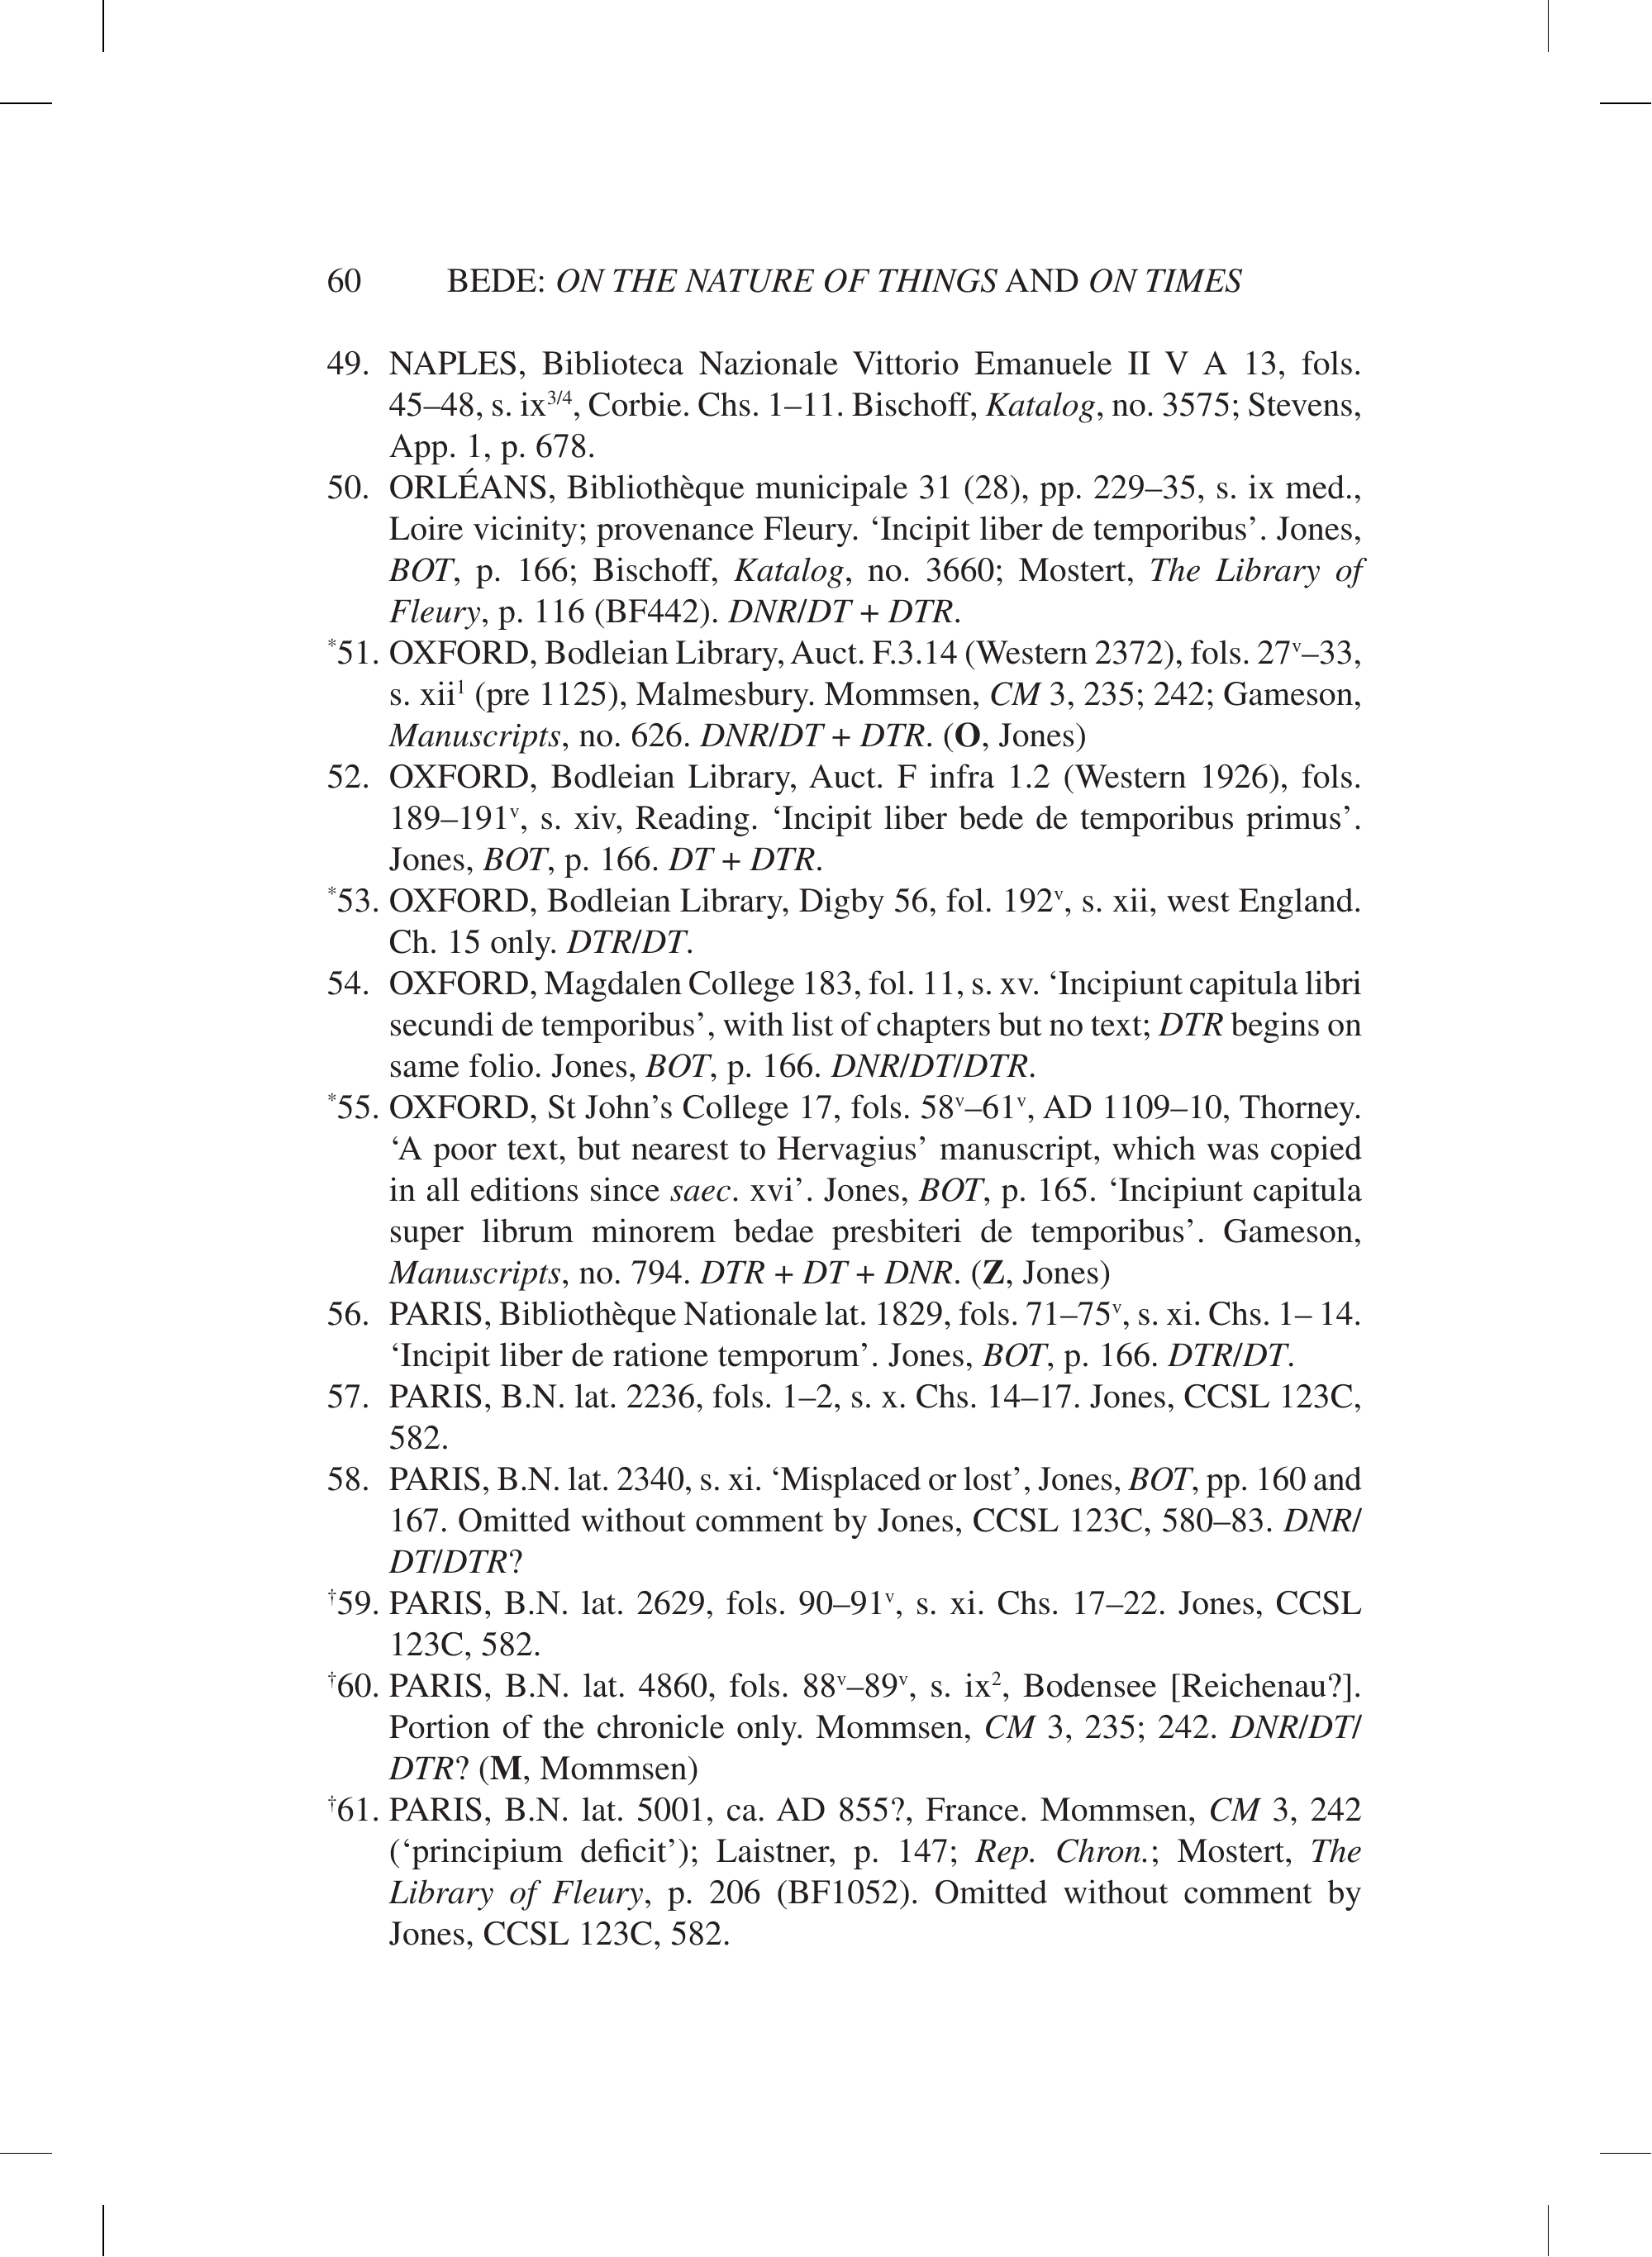 60 BEDE: ON THE NATURE OF THINGS AND ON TIMES
49. NAPLES, Biblioteca Nazionale Vittorio Emanuele II V A 13, fols.
45–48, s. ix³/⁴, Corbie. Chs. 1–11. Bischoff, Katalog, no. 3575; Stevens,
App. 1, p. 678.
50. ORLÉANS, Bibliothèque municipale 31 (28), pp. 229–35, s. ix med.,
Loire vicinity; provenance Fleury. ‘Incipit liber de temporibus’. Jones,
BOT, p. 166; Bischoff, Katalog, no. 3660; Mostert, The Library of
Fleury, p. 116 (BF442). DNR/DT + DTR.
*51. OXFORD, Bodleian Library, Auct. F.3.14 (Western 2372), fols. 27ᵛ–33,
s. xii¹ (pre 1125), Malmesbury. Mommsen, CM 3, 235; 242; Gameson,
Manuscripts, no. 626. DNR/DT + DTR. (O, Jones)
52. OXFORD, Bodleian Library, Auct. F infra 1.2 (Western 1926), fols.
189–191ᵛ, s. xiv, Reading. ‘Incipit liber bede de temporibus primus’.
Jones, BOT, p. 166. DT + DTR.
*53. OXFORD, Bodleian Library, Digby 56, fol. 192ᵛ, s. xii, west England.
Ch. 15 only. DTR/DT.
54. OXFORD, Magdalen College 183, fol. 11, s. xv. ‘Incipiunt capitula libri
secundi de temporibus’, with list of chapters but no text; DTR begins on
same folio. Jones, BOT, p. 166. DNR/DT/DTR.
*55. OXFORD, St John’s College 17, fols. 58ᵛ–61ᵛ, AD 1109–10, Thorney.
‘A poor text, but nearest to Hervagius’ manuscript, which was copied
in all editions since saec. xvi’. Jones, BOT, p. 165. ‘Incipiunt capitula
super librum minorem bedae presbiteri de temporibus’. Gameson,
Manuscripts, no. 794. DTR + DT + DNR. (Z, Jones)
56. PARIS, Bibliothèque Nationale lat. 1829, fols. 71–75ᵛ, s. xi. Chs. 1– 14.
‘Incipit liber de ratione temporum’. Jones, BOT, p. 166. DTR/DT.
57. PARIS, B.N. lat. 2236, fols. 1–2, s. x. Chs. 14–17. Jones, CCSL 123C,
582.
58. PARIS, B.N. lat. 2340, s. xi. ‘Misplaced or lost’, Jones, BOT, pp. 160 and
167. Omitted without comment by Jones, CCSL 123C, 580–83. DNR/
DT/DTR?
†59. PARIS, B.N. lat. 2629, fols. 90–91ᵛ, s. xi. Chs. 17–22. Jones, CCSL
123C, 582.
†60. PARIS, B.N. lat. 4860, fols. 88ᵛ–89ᵛ, s. ix², Bodensee [Reichenau?].
Portion of the chronicle only. Mommsen, CM 3, 235; 242. DNR/DT/
DTR? (M, Mommsen)
†61. PARIS, B.N. lat. 5001, ca. AD 855?, France. Mommsen, CM 3, 242
(‘principium deficit’); Laistner, p. 147; Rep. Chron.; Mostert, The
Library of Fleury, p. 206 (BF1052). Omitted without comment by
Jones, CCSL 123C, 582.